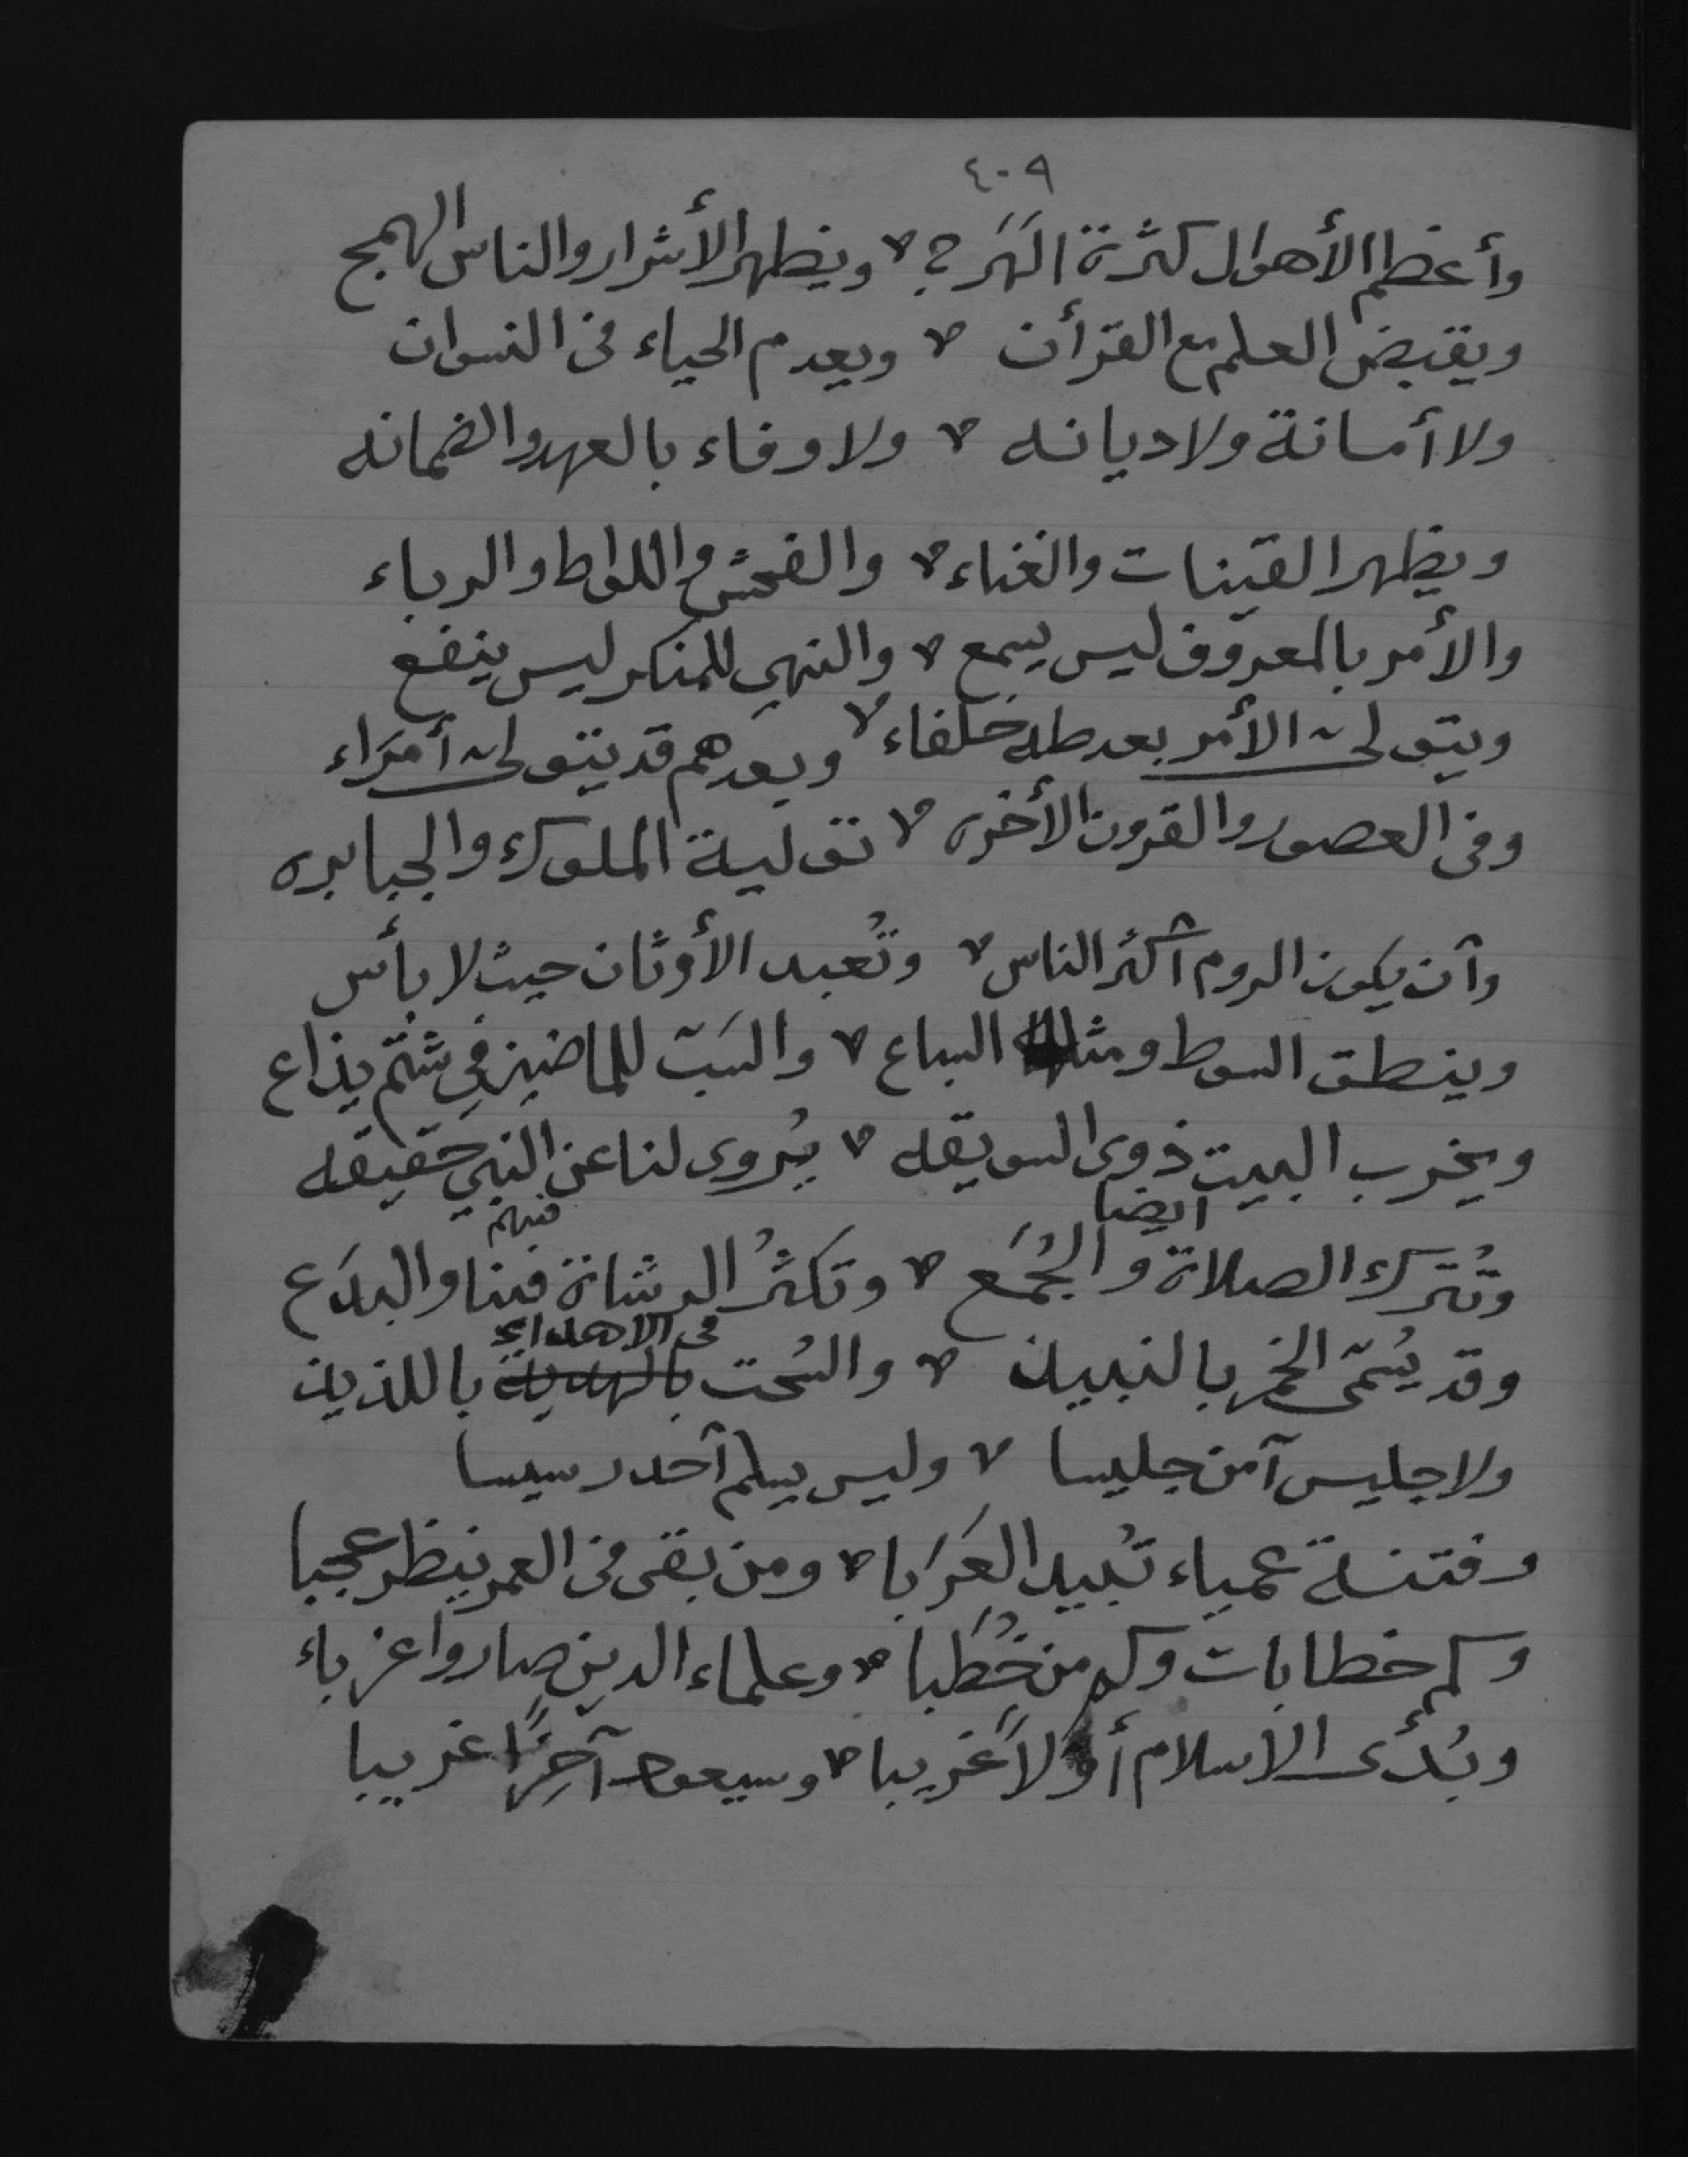 ٤٠٩
وأعظم الأهوال كثرة الهَرَج ؂ ويظهر الأشرار والناس الهمج
ويقبض العلم مع القرأن ؂ ويعدم الحياء في النسوان
ولا أمانة ولا ديانه ؂ ولا وفاء بالعهد والضمانه
ويظهر القينات والغناء ؂ والفحش واللواط والرباء
والأمر بالمعروف ليس يسمع ؂ والنهي للمنكر ليس ينفع
ويتولى الأمر بعد طه خلفاء ؂ وبعدهم قد يتولى أمَراء
وفى العصور والقرون الأخرى ؂ تولية الملوك والجبابره
وآن يكون الروم آكثر الناس ؂ وتُعبد الأوثان حيث لا بأس
وينطق السوط ومثله السباع ؂ والسَبّ للماضين في شتم يذاع
ويخرب البيت ذوى السويقه ؂ يُروى لنا عن النبي حقيقه
وتُترك الصلاة أيضا والجُمَع ؂ وتكثُر الرشاة فينا فيهم والبدَع
وقد يُسمّى الخمر بالنبيذ ؂ والسُحت بالهدية في الاهداء باللذيذ
ولا جليس آمن جليسا ؂ وليس يسلم آحد رسيسا
وفتنة عمياء تُبيد العَرَبا ؂ ومن بقى في العمر ينظر عجبا
وكم خطابات وكم من خُطَبا ؂ وعلماء الدين صاروا غرباء
وبُدئى الاسلام أولاً غريبا ؂ وسيعود آخِرًا غريبا